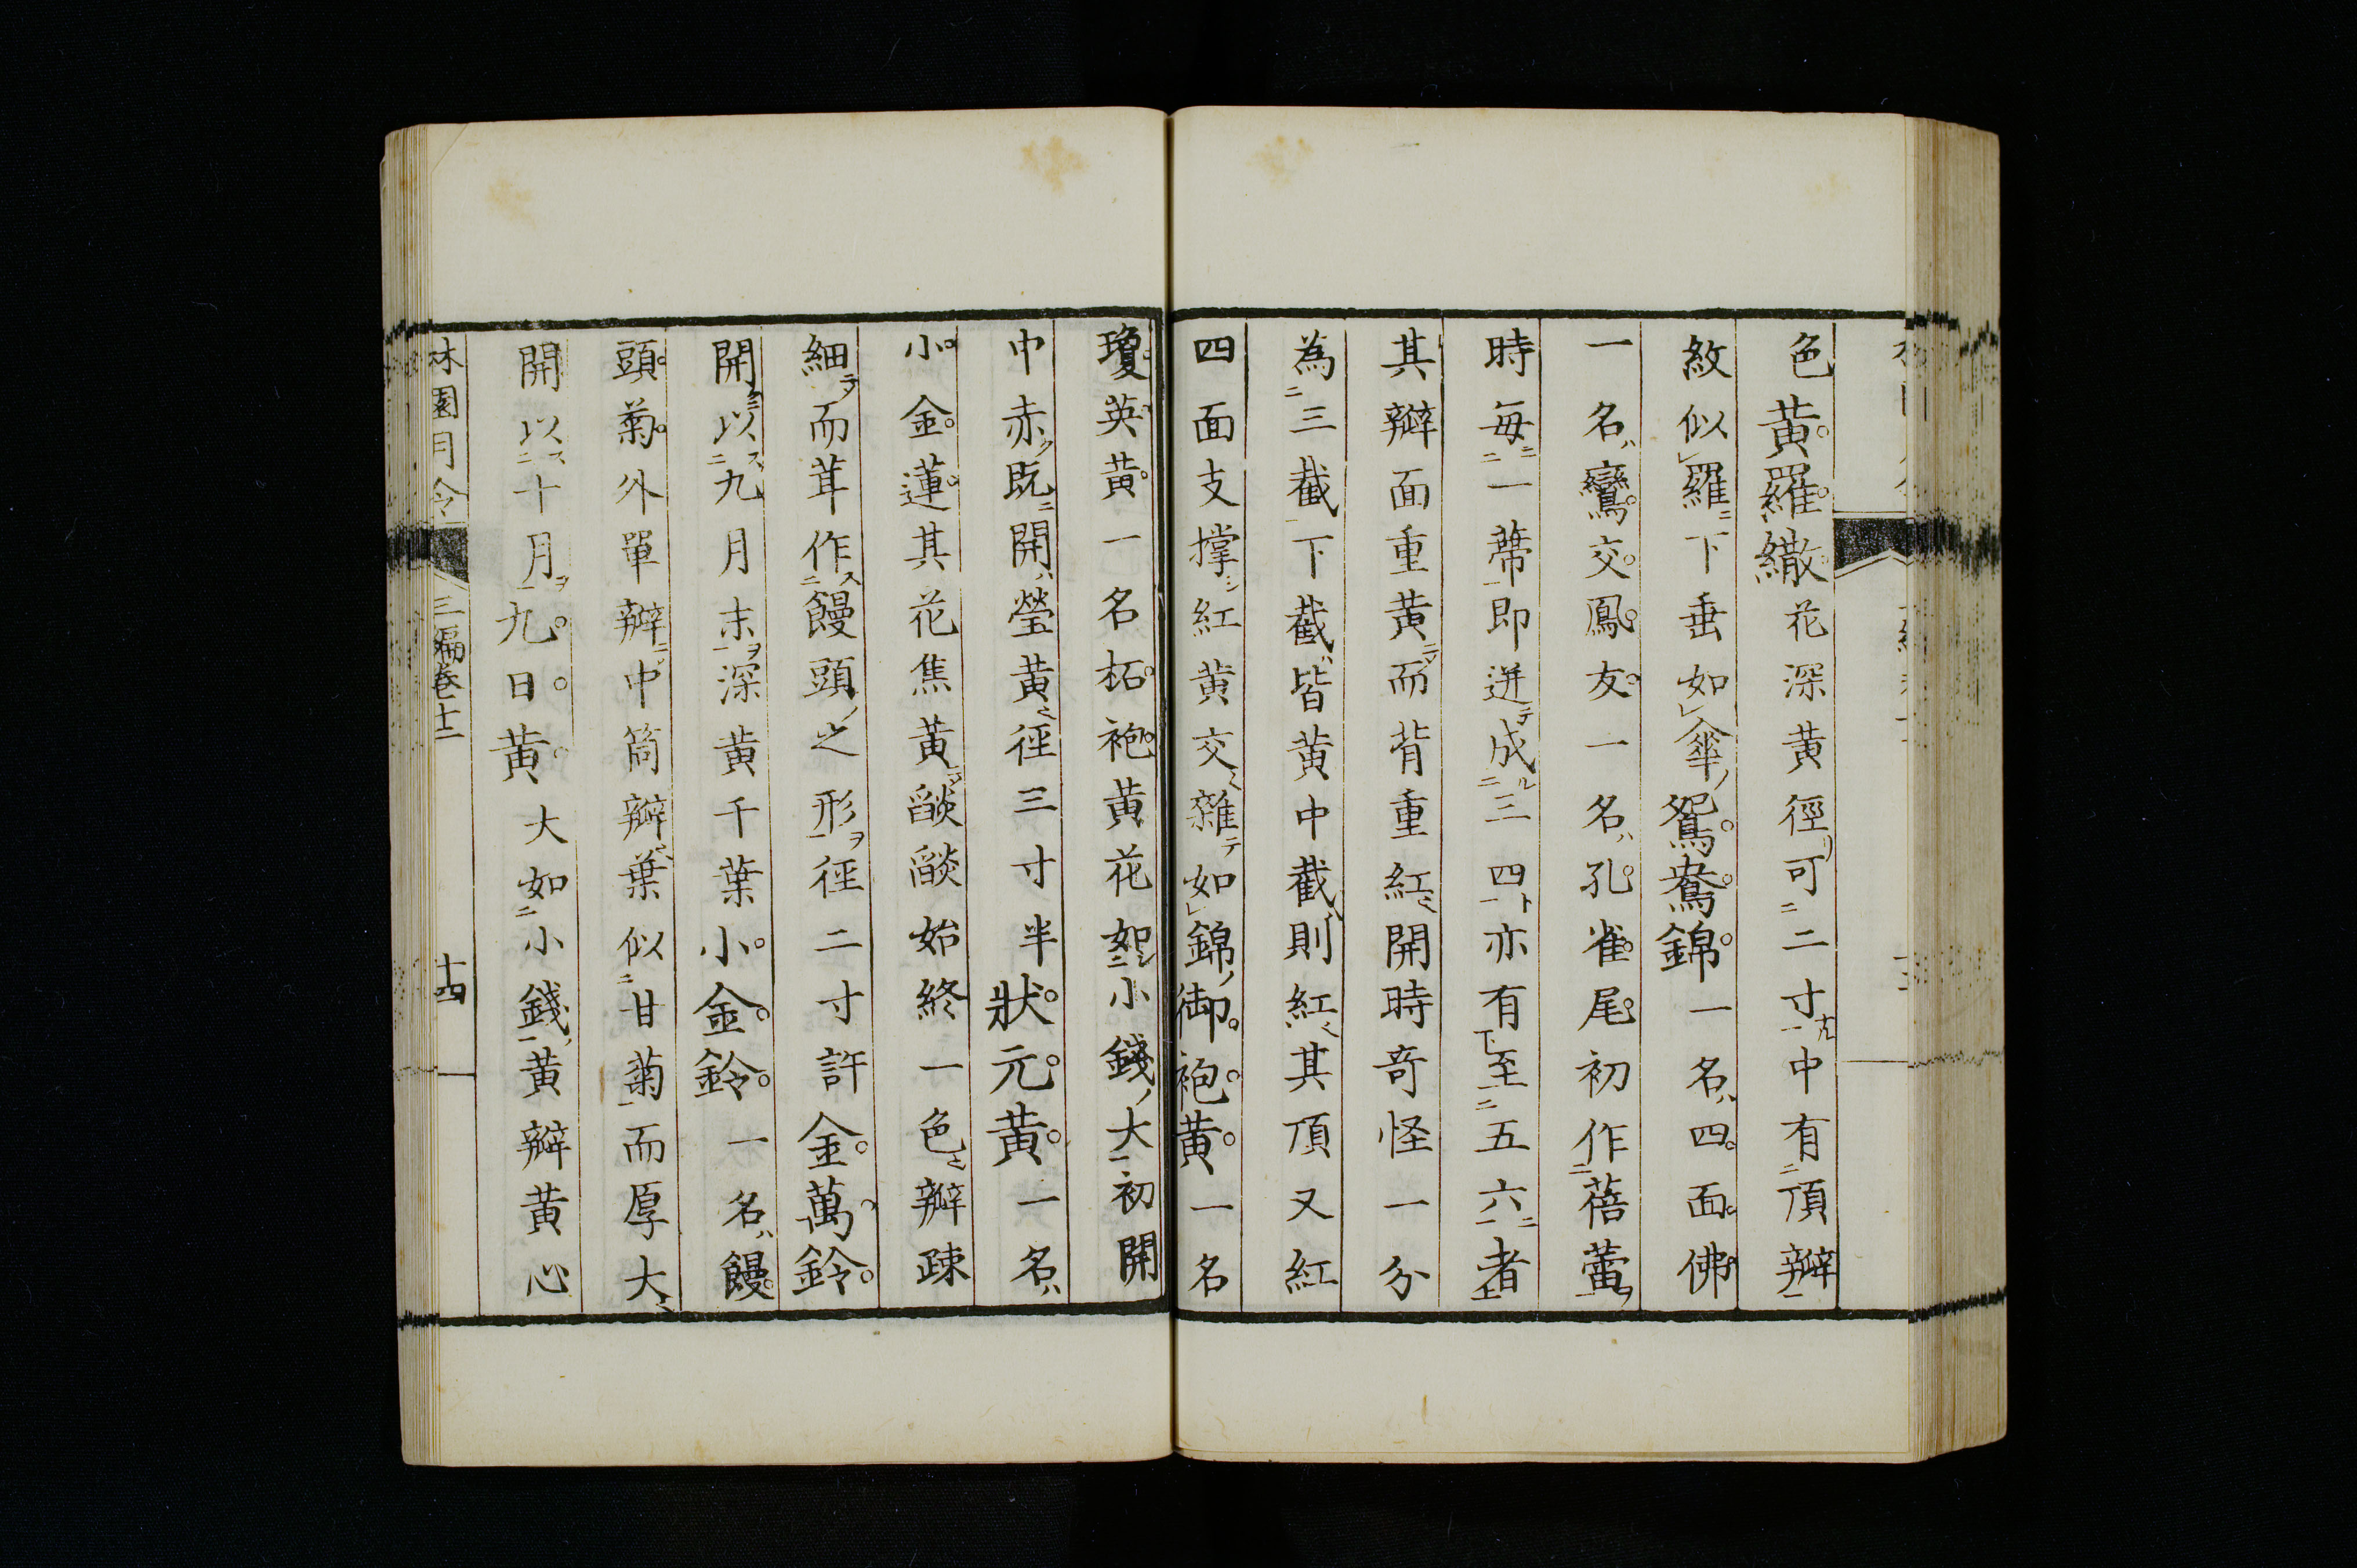 色黄羅繖花深黄徑可二寸中有頂瓣
紋似羅下垂如傘鴛鴦錦一名四面佛
一名鸞交鳳友一名孔雀尾初作蓓蕾
時毎一蔕即迸成三四亦有至五六者
其瓣面重黄而背重紅開時奇怪一分
為三截下截皆黄中截則紅其頂又紅
四面支撑紅黄交雜如錦御袍黄一名
瓊英黄一名柘袍黄花如小錢大初開
中赤既開瑩黄徑三寸半狀元黄一名
小金蓮其花焦黄燄燄始終一色瓣疎
細而茸作饅頭之形徑二寸許金萬鈴
開以九月末深黄千葉小金鈴一名饅
頭菊外單瓣中筒瓣葉似甘菊而厚大
開以十月九日黄大如小錢黄瓣黄心
林園月令 三編卷十二 十四